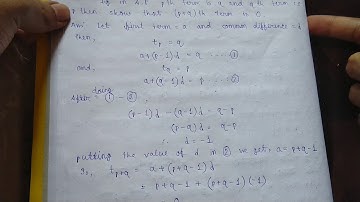 in A.P. pth term is q and qth term is
p then show that (p+q)th term is 0.
Let first term = a and common difference = d
then,
tp = q
a+(p-1)d = q ... ①
and,
tq = p
a+(q-1)d = p ... ②
doing ① - ②
(p-1)d - (q-1)d = q-p
(p-q)d = q-p
d = -1
putting the value of d in ② we get, a = p+q-1
tp+q = a+(p+q-1)d
= p+q-1 + (p+q-1)(-1)